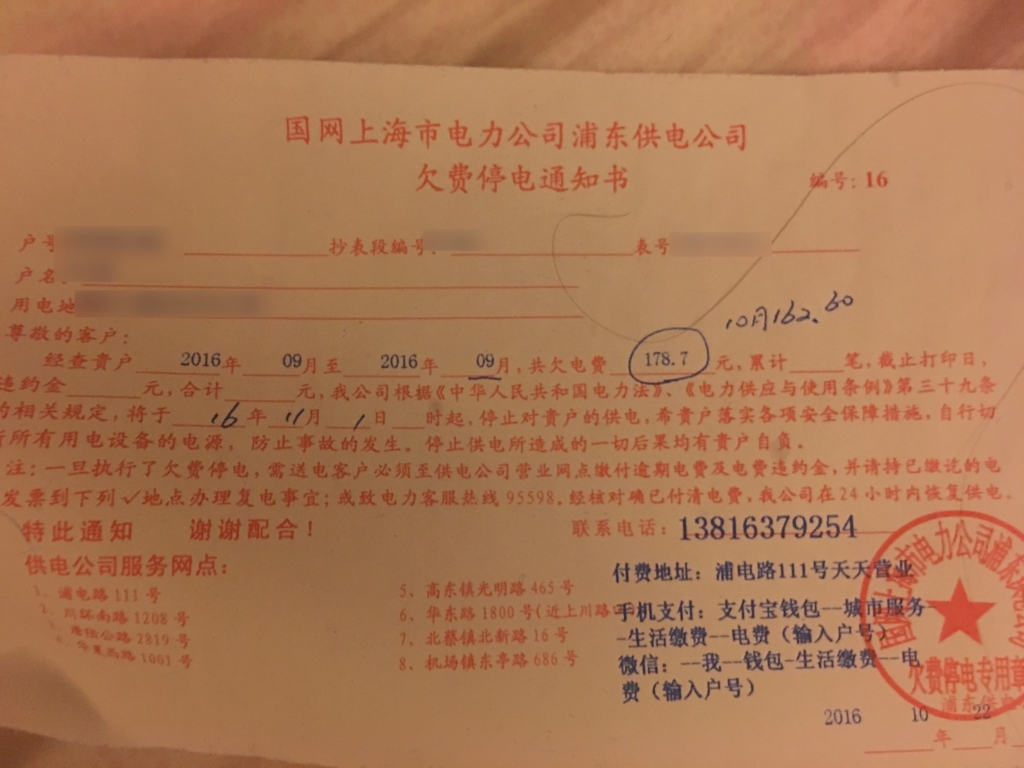 国网上海市电力公司浦东供电公司
欠费停电通知书
编号: 16
户号 抄表段编号: 表号
户名
用电地
10月162.60
尊敬的客户:
经查贵户 2016年 09月至 2016年 09月,共欠电费 178.7 元,累计 笔,截止打印日,
违约金 元,合计 元,我公司根据《中华人民共和国电力法》、《电力供应与使用条例》第三十九条
的相关规定,将于 16 年 11月 1日 时起,停止对贵户的供电,希贵户落实各项安全保障措施,自行切
所有用电设备的电源,防止事故的发生。停止供电所造成的一切后果均有贵户自负。
注:一旦执行了欠费停电,需送电客户必须至供电公司营业网点缴付逾期电费及电费违约金,并请持已缴讫的电
发票到下列✓地点办理复电事宜;或致电力客服热线 95598。经核对确已付清电费,我公司在24小时内恢复供电。
特此通知 谢谢配合!
联系电话: 13816379254
供电公司服务网点:
1、浦电路 111 号
2、川环南路 1208 号
3、唐陆公路 2819 号
4、华夏西路 1001 号
5、高东镇光明路 465 号
6、华东路 1800 号(近上川路
7、北蔡镇北新路 16 号
8、机场镇东亭路 686 号
付费地址: 浦电路111号天天营业
手机支付: 支付宝钱包--城市服务-
-生活缴费--电费(输入户号)
微信: --我--钱包-生活缴费--电
费(输入户号)
市电力公司浦东
欠费停电专用章
浦东供电
2016 10 22
年 月